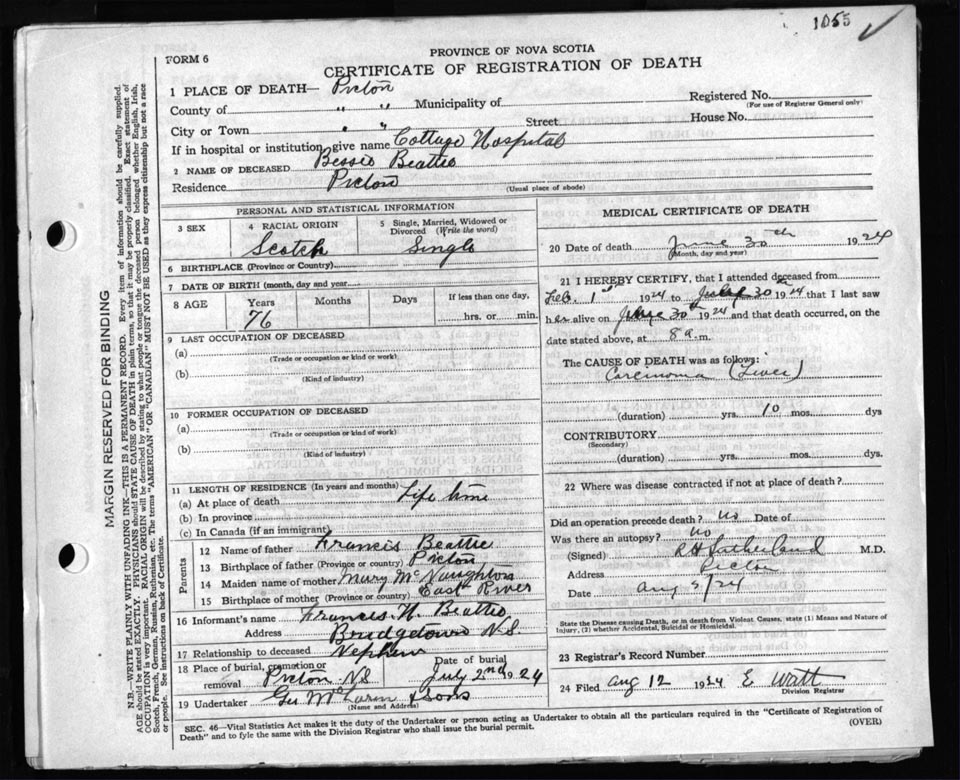 1055
FORM 6
PROVINCE OF NOVA SCOTIA
CERTIFICATE OF REGISTRATION OF DEATH
1 PLACE OF DEATH— Pictou
Registered No.
(For use of Registrar General only)
County of " " Municipality of
House No.
City or Town " " Street
If in hospital or institution give name Cottage Hospital
2 NAME OF DECEASED Bessie Beattie
Residence Pictou
(Usual place of abode)
PERSONAL AND STATISTICAL INFORMATION
3 SEX
4 RACIAL ORIGIN
Scotch
5 Single, Married, Widowed or Divorced (Write the word)
Single
6 BIRTHPLACE (Province or Country)
7 DATE OF BIRTH (month, day and year)
8 AGE
Years
76
Months
Days
If less than one day,
hrs. or min.
9 LAST OCCUPATION OF DECEASED
(a)
(Trade or occupation or kind or work)
(b)
(Kind of industry)
10 FORMER OCCUPATION OF DECEASED
(a)
(Trade or occupation or kind of work)
(b)
(Kind of industry)
11 LENGTH OF RESIDENCE (In years and months)
(a) At place of death Life time
(b) In province
(c) In Canada (if an immigrant)
Parents
12 Name of father Francis Beattie
13 Birthplace of father (Province or country) Pictou
14 Maiden name of mother Mary McNaughton
15 Birthplace of mother (Province or country) East River
16 Informant's name Francis H. Beattie
Address Bridgetown N.S.
17 Relationship to deceased Nephew
18 Place of burial, cremation or removal Pictou N.S
Date of burial July 2nd 1924
19 Undertaker Geo McLaren & Sons
(Name and Address)
MEDICAL CERTIFICATE OF DEATH
20 Date of death June 30th 1924
(Month, day and year)
21 I HEREBY CERTIFY, that I attended deceased from
Feb. 1st 1924 to 30th 1924 that I last saw
her alive on June 30th 1924 and that death occurred, on the
date stated above, at 8 a. m.
The CAUSE OF DEATH was as follows:
Carcinoma (Liver)
(duration) yrs. 10 mos. dys
CONTRIBUTORY
(Secondary)
(duration) yrs. mos. dys.
22 Where was disease contracted if not at place of death?
Did an operation precede death? no Date of
Was there an autopsy? no
(Signed) R H Sutherland M.D.
Address Pictou
Date Aug 5/24
State the Disease causing Death, or in death from Violent Causes, state (1) Means and Nature of
Injury, (2) whether Accidental, Suicidal or Homicidal.
23 Registrar's Record Number
24 Filed Aug 12 1924 E Watt
Division Registrar
SEC. 46—Vital Statistics Act makes it the duty of the Undertaker or person acting as Undertaker to obtain all the particulars required in the "Certificate of Registration of
Death" and to fyle the same with the Division Registrar who shall issue the burial permit.
(OVER)
MARGIN RESERVED FOR BINDING
N.B.—WRITE PLAINLY WITH UNFADING INK—THIS IS A PERMANENT RECORD. Every item of information should be carefully supplied.
AGE should be stated EXACTLY. PHYSICIANS should STATE CAUSE OF DEATH in plain terms, so that it may be properly classified. Exact statement of
OCCUPATION is very important. RACIAL ORIGIN will be described by stating to what people or tongue the deceased person belonged whether English, Irish,
Scotch, French, German, Russian, Ruthenian, etc. The terms "AMERICAN" or "CANADIAN" MUST NOT BE USED as they express citizenship but not a race
or people. See instructions on back of Certificate.